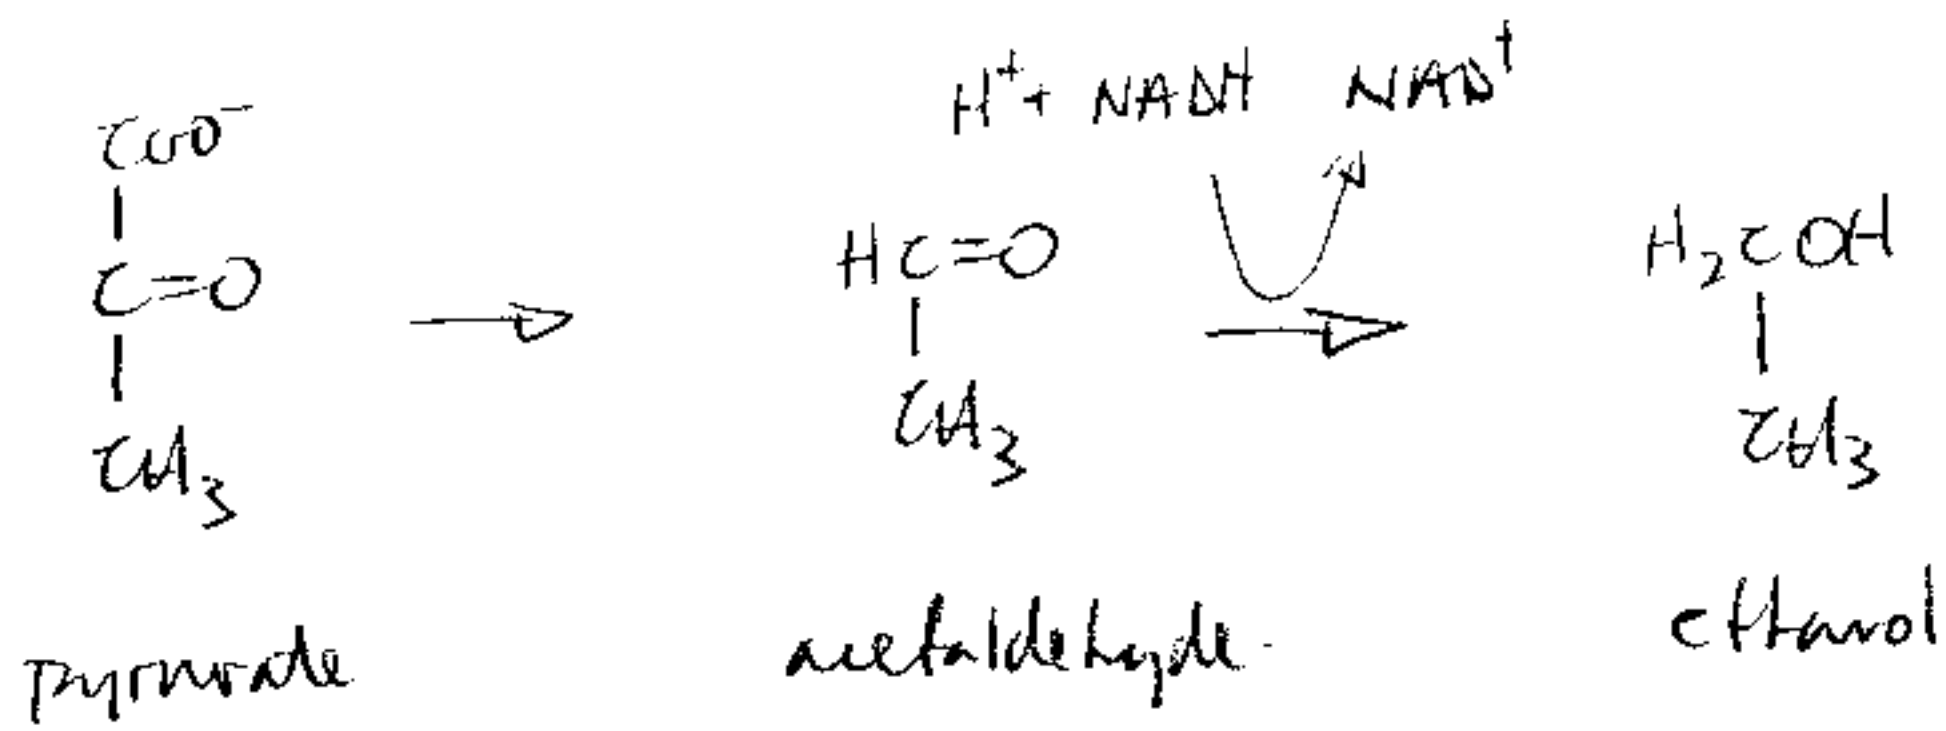 H⁺ + NADH NAD⁺
COO⁻
C=O HC=O H₂COH
CH₃ CH₃ CH₃
pyruvate acetaldehyde ethanol